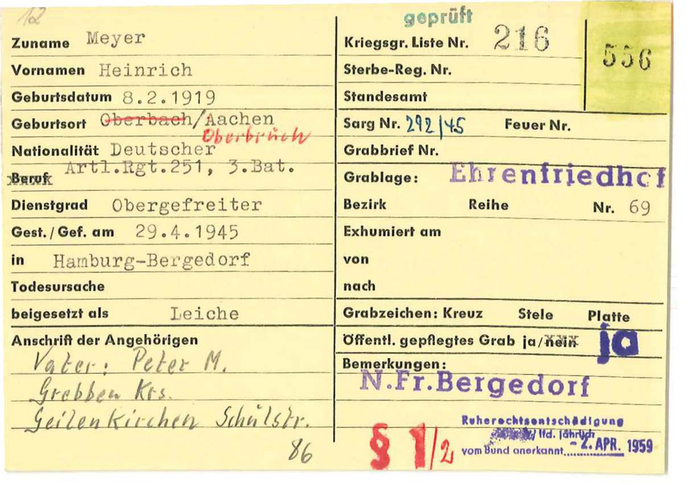 12
geprüft
Zuname Meyer
Vornamen Heinrich
Geburtsdatum 8.2.1919
Geburtsort Oberbach/Aachen
Oberbruch
Nationalität Deutscher
Artl.Rgt.251, 3.Bat.
Beruf
Dienstgrad Obergefreiter
Gest./Gef. am 29.4.1945
in Hamburg-Bergedorf
Todesursache
beigesetzt als Leiche
Anschrift der Angehörigen
Vater: Peter M.
Grebben Krs.
Geilenkirchen Schulstr.
86
Kriegsgr. Liste Nr. 216
556
Sterbe-Reg. Nr.
Standesamt
Sarg Nr. 292/45 Feuer Nr.
Grabbrief Nr.
Grablage: Ehrenfriedhof
Bezirk Reihe Nr. 69
Exhumiert am
von
nach
Grabzeichen: Kreuz Stele Platte
Öffentl. gepflegtes Grab ja/nein ja
Bemerkungen:
N.Fr.Bergedorf
§ 1/2
Ruherechtsentschädigung
lfd. jährlich
vom Bund anerkannt -2. APR. 1959